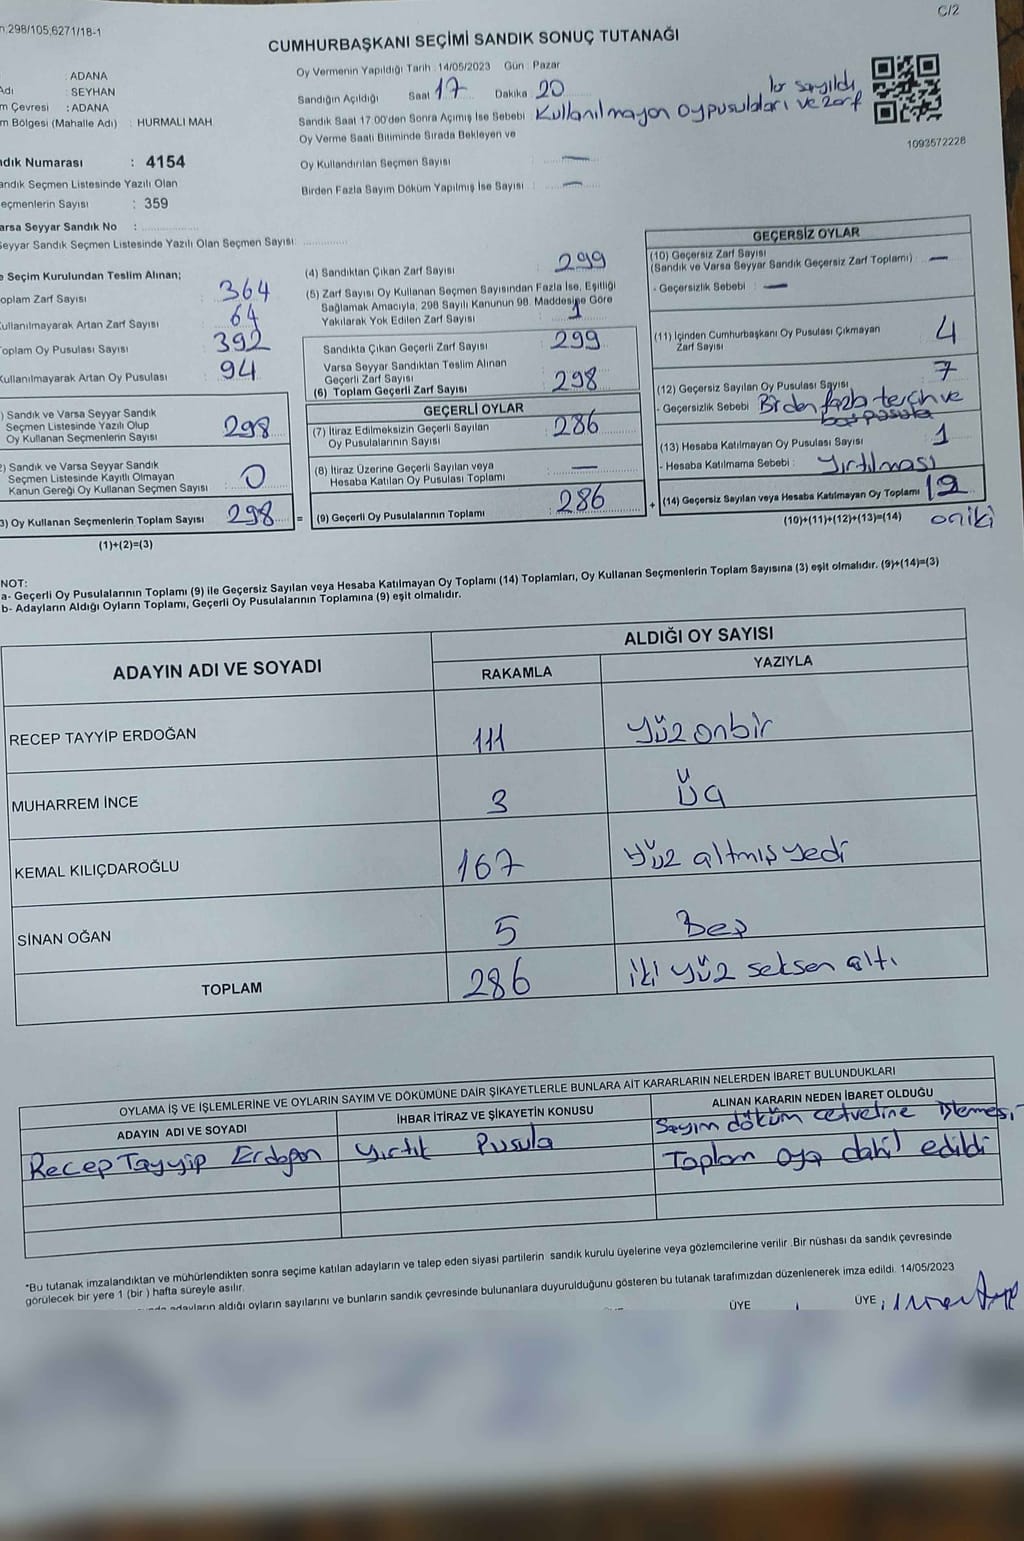 C/2
n.298/105;6271/18-1
CUMHURBAŞKANI SEÇİMİ SANDIK SONUÇ TUTANAĞI
: ADANA
Adı : SEYHAN
m Çevresi : ADANA
m Bölgesi (Mahalle Adı) : HURMALI MAH
ndık Numarası : 4154
andık Seçmen Listesinde Yazılı Olan
eçmenlerin Sayısı : 359
arsa Seyyar Sandık No :
Seyyar Sandık Seçmen Listesinde Yazılı Olan Seçmen Sayısı:
Oy Vermenin Yapıldığı Tarih : 14/05/2023 Gün : Pazar
Sandığın Açıldığı Saat 17 Dakika 20
Sandık Saat 17:00'den Sonra Açımış İse Sebebi Kullanılmayan oy pusulaları ve zarf
lar sayıldı
Oy Verme Saati Bitiminde Sırada Bekleyen ve
Oy Kullandırılan Seçmen Sayısı : —
Birden Fazla Sayım Döküm Yapılmış İse Sayısı : —
1093572228
e Seçim Kurulundan Teslim Alınan;
oplam Zarf Sayısı : 364
ullanılmayarak Artan Zarf Sayısı : 64
oplam Oy Pusulası Sayısı : 392
Kullanılmayarak Artan Oy Pusulası : 94
) Sandık ve Varsa Seyyar Sandık
Seçmen Listesinde Yazılı Olup
Oy Kullanan Seçmenlerin Sayısı : 298
2) Sandık ve Varsa Seyyar Sandık
Seçmen Listesinde Kayıtlı Olmayan
Kanun Gereği Oy Kullanan Seçmen Sayısı : 0
3) Oy Kullanan Seçmenlerin Toplam Sayısı 298
(1)+(2)=(3)
(4) Sandıktan Çıkan Zarf Sayısı : 299
(5) Zarf Sayısı Oy Kullanan Seçmen Sayısından Fazla İse, Eşitliği
Sağlamak Amacıyla, 298 Sayılı Kanunun 98. Maddesine Göre
Yakılarak Yok Edilen Zarf Sayısı : 1
Sandıkta Çıkan Geçerli Zarf Sayısı : 299
Varsa Seyyar Sandıktan Teslim Alınan
Geçerli Zarf Sayısı
(6) Toplam Geçerli Zarf Sayısı : 298
GEÇERLİ OYLAR
(7) İtiraz Edilmeksizin Geçerli Sayılan
Oy Pusulalarının Sayısı : 286
(8) İtiraz Üzerine Geçerli Sayılan veya
Hesaba Katılan Oy Pusulası Toplamı : —
= (9) Geçerli Oy Pusulalarının Toplamı : 286
GEÇERSİZ OYLAR
(10) Geçersiz Zarf Sayısı
(Sandık ve Varsa Seyyar Sandık Geçersiz Zarf Toplamı) : —
- Geçersizlik Sebebi : —
(11) İçinden Cumhurbaşkanı Oy Pusulası Çıkmayan
Zarf Sayısı : 4
(12) Geçersiz Sayılan Oy Pusulası Sayısı : 7
- Geçersizlik Sebebi Birden fazla tercih ve
boş pusula
(13) Hesaba Katılmayan Oy Pusulası Sayısı : 1
- Hesaba Katılmama Sebebi : Yırtılması
+ (14) Geçersiz Sayılan veya Hesaba Katılmayan Oy Toplamı 12
(10)+(11)+(12)+(13)=(14) oniki
NOT:
a- Geçerli Oy Pusulalarının Toplamı (9) ile Geçersiz Sayılan veya Hesaba Katılmayan Oy Toplamı (14) Toplamları, Oy Kullanan Seçmenlerin Toplam Sayısına (3) eşit olmalıdır. (9)+(14)=(3)
b- Adayların Aldığı Oyların Toplamı, Geçerli Oy Pusulalarının Toplamına (9) eşit olmalıdır.
ADAYIN ADI VE SOYADI ALDIĞI OY SAYISI
RAKAMLA YAZIYLA
RECEP TAYYİP ERDOĞAN 111 Yüz onbir
MUHARREM İNCE 3 Üç
KEMAL KILIÇDAROĞLU 167 Yüz altmış yedi
SİNAN OĞAN 5 Beş
TOPLAM 286 iki yüz seksen altı
OYLAMA İŞ VE İŞLEMLERİNE VE OYLARIN SAYIM VE DÖKÜMÜNE DAİR ŞİKAYETLERLE BUNLARA AİT KARARLARIN NELERDEN İBARET BULUNDUKLARI
ADAYIN ADI VE SOYADI İHBAR İTİRAZ VE ŞİKAYETİN KONUSU ALINAN KARARIN NEDEN İBARET OLDUĞU
Recep Tayyip Erdoğan Yırtık Pusula Sayım döküm cetveline işlemesi
Toplam oya dahil edildi
*Bu tutanak imzalandıktan ve mühürlendikten sonra seçime katılan adayların ve talep eden siyasi partilerin sandık kurulu üyelerine veya gözlemcilerine verilir .Bir nüshası da sandık çevresinde
görülecek bir yere 1 (bir ) hafta süreyle asılır.
adayların aldığı oyların sayılarını ve bunların sandık çevresinde bulunanlara duyurulduğunu gösteren bu tutanak tarafımızdan düzenlenerek imza edildi. 14/05/2023
ÜYE ÜYE